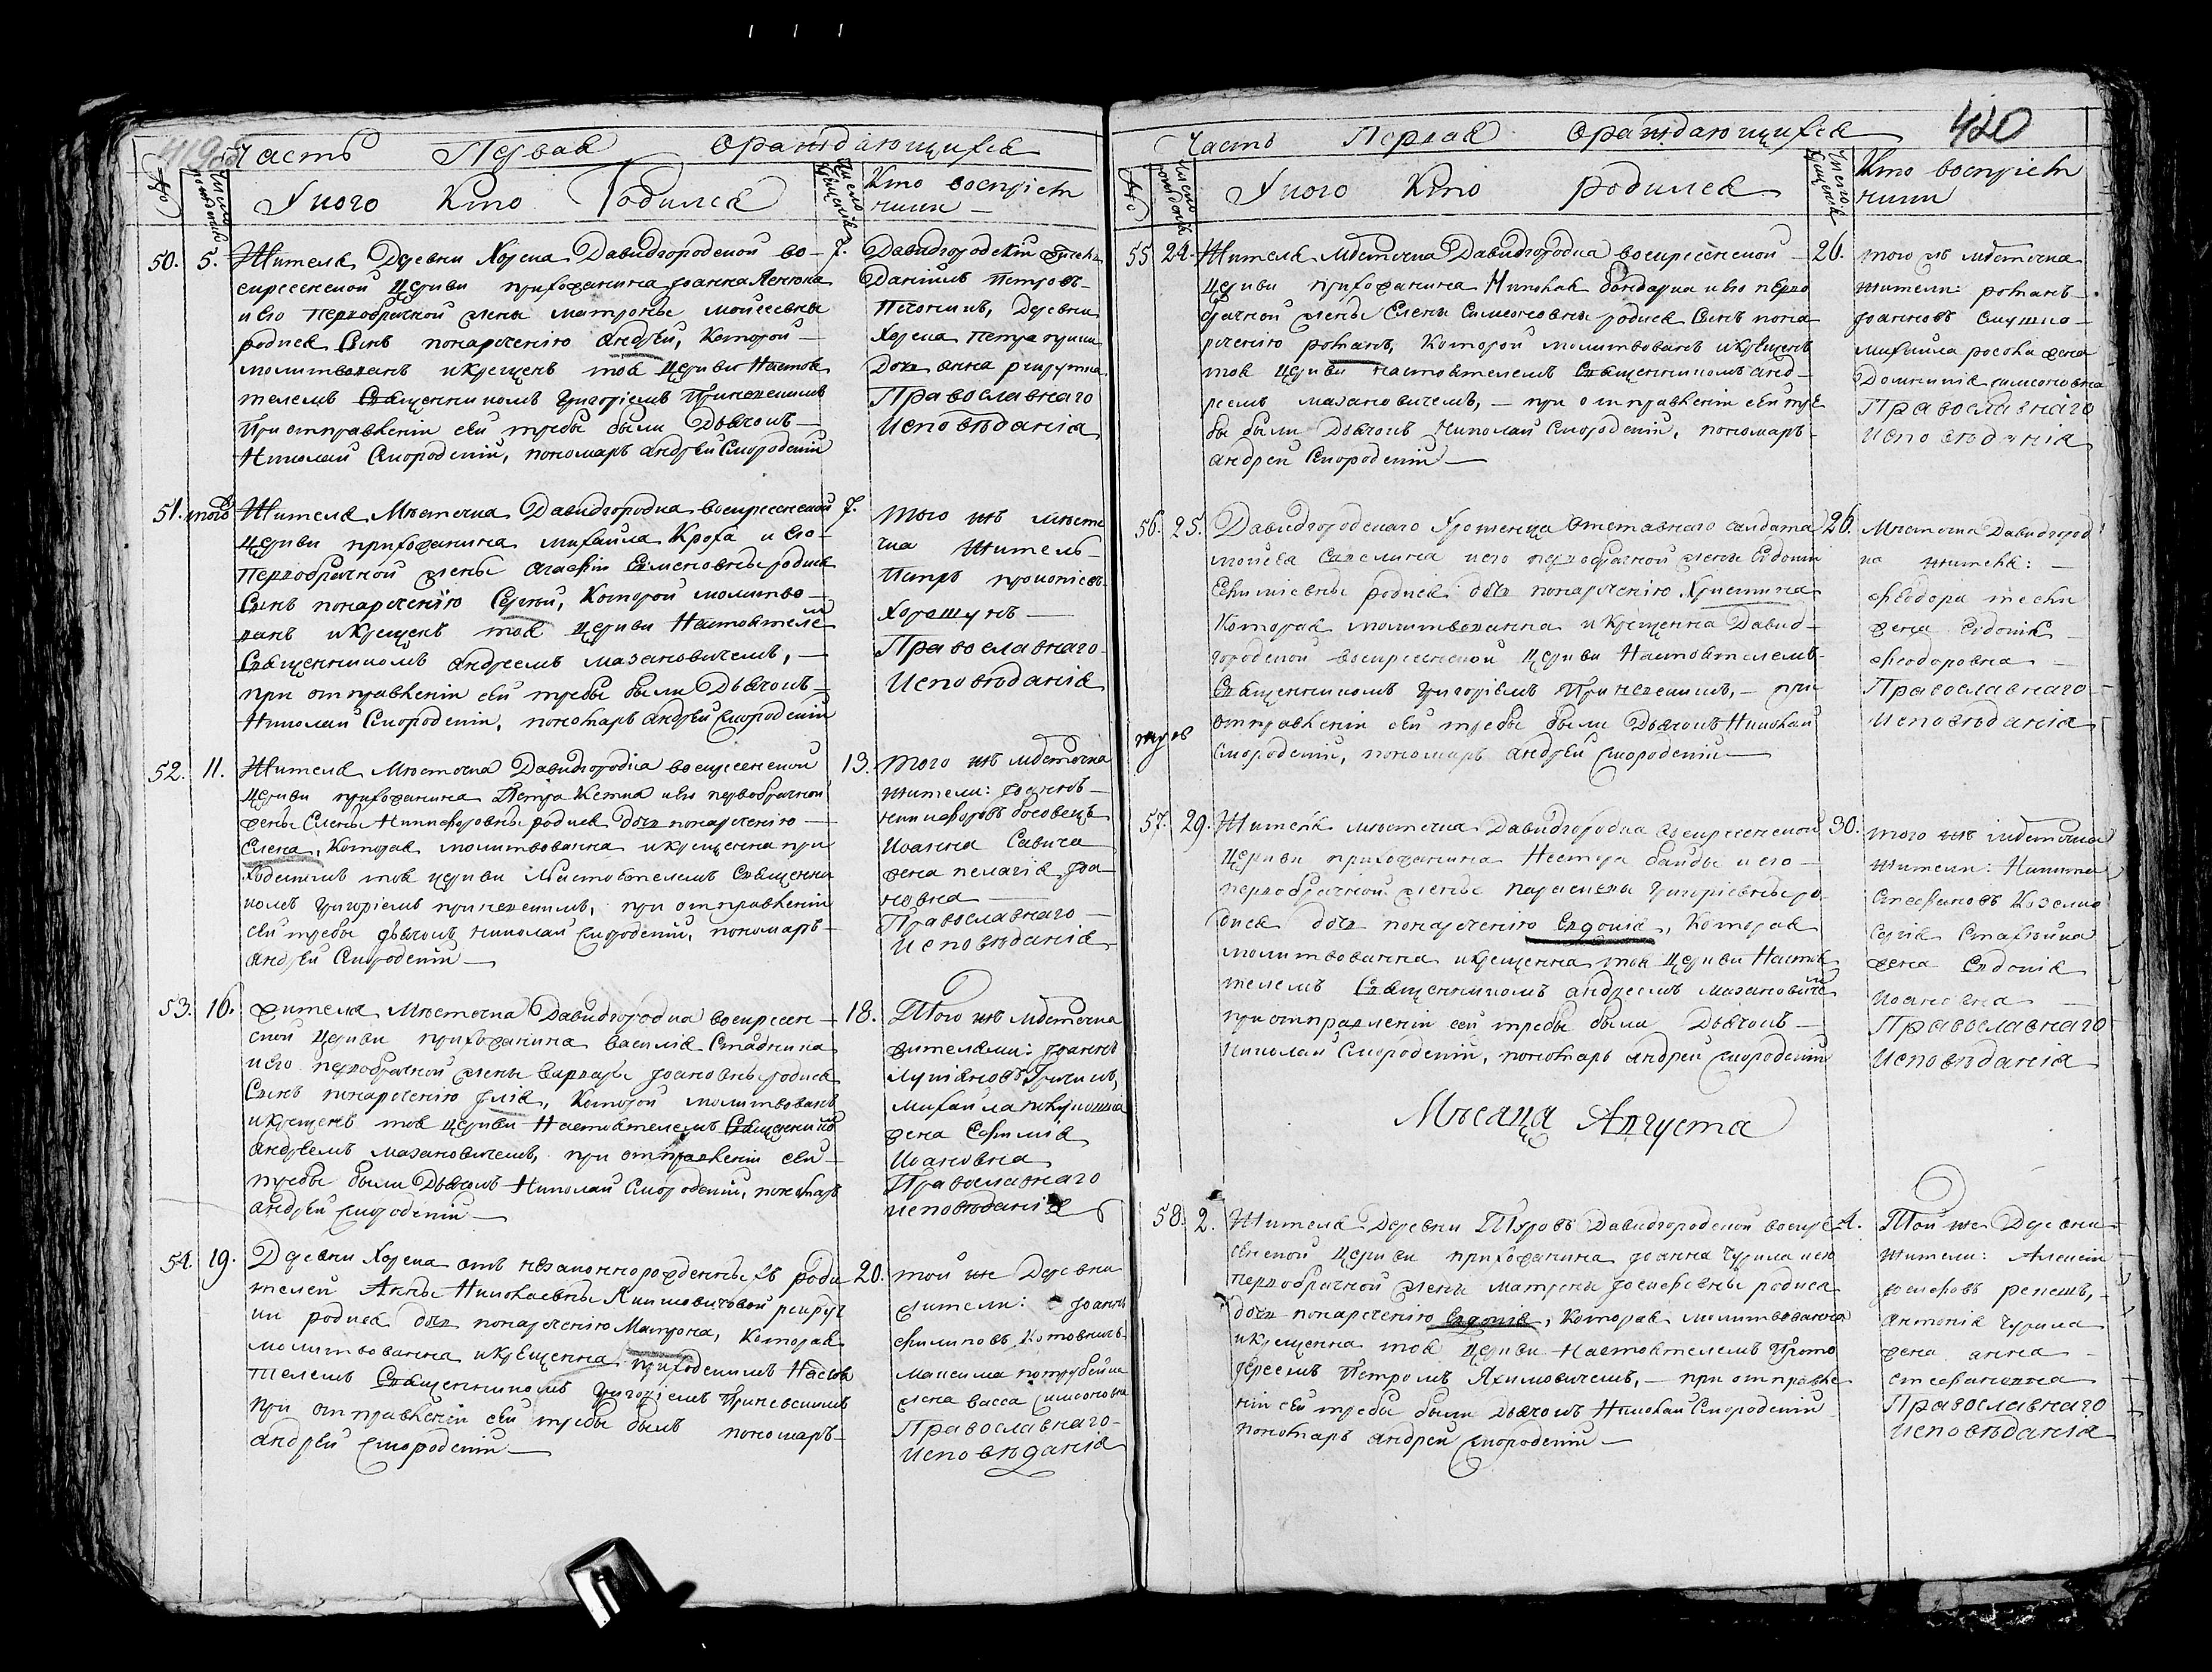 Часть Первая Ораждающихся
№
Число рожденія
У кого Кто Родился
Число крещенія
Кто воспріем
ники
50. 5. Жителя Деревни Хорска Давидгородской во- 7.
скресенской Церкви прихожанина Іоанна
и его первобрачной жены Матроны Мойсеевны
родися Сынъ понареченію Андрей, Которой
молитвованъ икрещенъ тоя Церкви Настоя
телемъ Священникомъ Григоріемъ
При отправленіи сей требы были Дьячокъ
Николай Смородскій, пономарь Андрей Смородскій
Давидгородскій
Даніилъ Петровъ
Деревни
Хорска Петра
Дочь Анна рекрутка
Православнаго
Исповѣданія
51. того Жителя Мѣстечка Давидгородка воскресенской 7.
Церкви прихожанина Михаила Кроха и его
Первобрачной жены Агафіи Семеновны родися
Сынъ понареченію Сергей, Которой молитво
ванъ икрещенъ тоя Церкви Настоятеле
Священникомъ Андреемъ Мазановичемъ,
при отправленіи сей требы были Дьячокъ
Николай Смородскій, пономарь Андрей Смородскій
Того жъ мѣсте
чка Житель
Петръ прокопіевъ
Хорошунъ
Православнаго
Исповѣданія
52. 11. Жителя Мѣстечка Давидгородка воскресенской 13.
Церкви прихожанина Петра и его первобрачной
жены Елены Никифоровны родися дочь понареченію
Елена, Которая молитвованна икрещенна при
ходскимъ тоя церкви Настоятелемъ Священни
комъ Григоріемъ, при отправленіи
сей требы дьячокъ Николай Смородскій, пономарь
Андрей Смородскій
Того жъ мѣстечка
жители: Іоаннъ
Никифоровъ
Иоанна Савича
жена пелагія Іоа
новна
Православнаго
Исповѣданія
53. 16. Жителя Мѣстечка Давидгородка воскресен 18.
ской Церкви прихожанина Василія Стадника
и его первобрачной жены Варвары Іоановны родися
Сынъ понареченію Илія, Которой молитвованъ
икрещенъ тоя церкви Настоятелемъ Священнико
Андреемъ Мазановичемъ, при отправленіи сей
требы были Дьячокъ Николай Смородскій, пономарь
Андрей Смородскій
Того жъ мѣстечка
жителями: Іоаннъ
Лукіяновъ
Михайла
жена Евфимія
Иоановна
Православнаго
исповѣданія
54. 19. Деревни Хорска отъ незаконнорожденныхъ роди 20.
телей Анны Николаевны Якимовичовой рекрут
ки родися дочь понареченію Матрона, Которая
молитвованна икрещенна приходскимъ Настоя
телемъ Священникомъ Григоріемъ
при отправленіи сей требы былъ пономарь
Андрей Смородскій
той же Деревни
жители: Іоаннъ
филиповъ Котовичъ
Максима
жена васса Симоновна
Православнаго
Исповѣданія
420
Часть Первая Ораждающихся
№
Число рожденія
У кого Кто родился
Число крещенія
Кто воспріем
ники
55 24. Жителя Мѣстечка Давидгородка воскресенской 26.
Церкви прихожанина Николая бондарца и его перво
брачной жены Елены Симеоновны родися Сынъ пона
реченію романъ, Которой молитвованъ икрещенъ
тоя Церкви настоятелемъ Священникомъ Анд
реемъ Мазановичемъ, при отправленіи сей тре
бы были Дьячокъ Николай Смородскій, пономарь
Андрей Смородскій
того жъ мѣстечка
жители: романъ
Іоанновъ
Михайла жена
Домникія симоновна
Православнаго
Исповѣданія
56. 25. Давидгородскаго Уроженца Отставнаго салдата 26.
и его первобрачной жены Евдокіи
Ефиміевны родися дочь понареченію Христина
Которая молитвованна икрещенна Давид
городской воскресенской Церкви Настоятелемъ
Священникомъ Григоріемъ, при
отправленіи сей требы были Дьячокъ Николай
Смородскій, пономарь Андрей Смородскій
Мѣстечка Давидгород
ка жители:
Феодора
жена Евдокія
Феодоровна
Православнаго
Исповѣданія
57. 29. Жителя Мѣстечка Давидгородка воскресенской 30.
Церкви прихожанина Нестера байды и его
первобрачной жены параскевы Григоріевны ро
дися дочь понареченію Евдокія, Которая
молитвованна икрещенна тоя Церкви Настоя
телемъ Священникомъ Андреемъ Мазановиче
при отправленіи сей требы были Дьячокъ
Николай Смородскій, пономарь Андрей Смородскій
того жъ мѣстечка
жители: Никита
Стефановъ
Сергія
жена Евдокія
Иоановна
Православнаго
Исповѣданія
Мѣсяца Августа
58. 2. Жителя Деревни Туровъ Давидгородской воскре 4.
сенской Церкви прихожанина Іоанна Чурила и его
первобрачной жены Матрены Іосифовны родися
дочь понареченію Евдокія, Которая молитвованна
икрещенна тоя Церкви Настоятелемъ Прото
іереемъ Петромъ Якимовичемъ, при отправле
ніи сей требы были Дьячокъ Николай Смородскій
пономарь Андрей Смородскій
Той же Деревни
жители: Алексій
Іосифовъ
Антонія Чурила
жена анна
стефановна
Православнаго
Исповѣданія